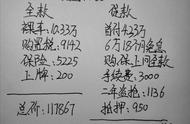 全款
裸车:10.33万
购置税:9142
保险:5225
上牌:200
总价:117867
贷款
首付4.23万
6万18个月免息
购.保.上同全款
手续费:3000
二年盗抢:1136
抵押:950